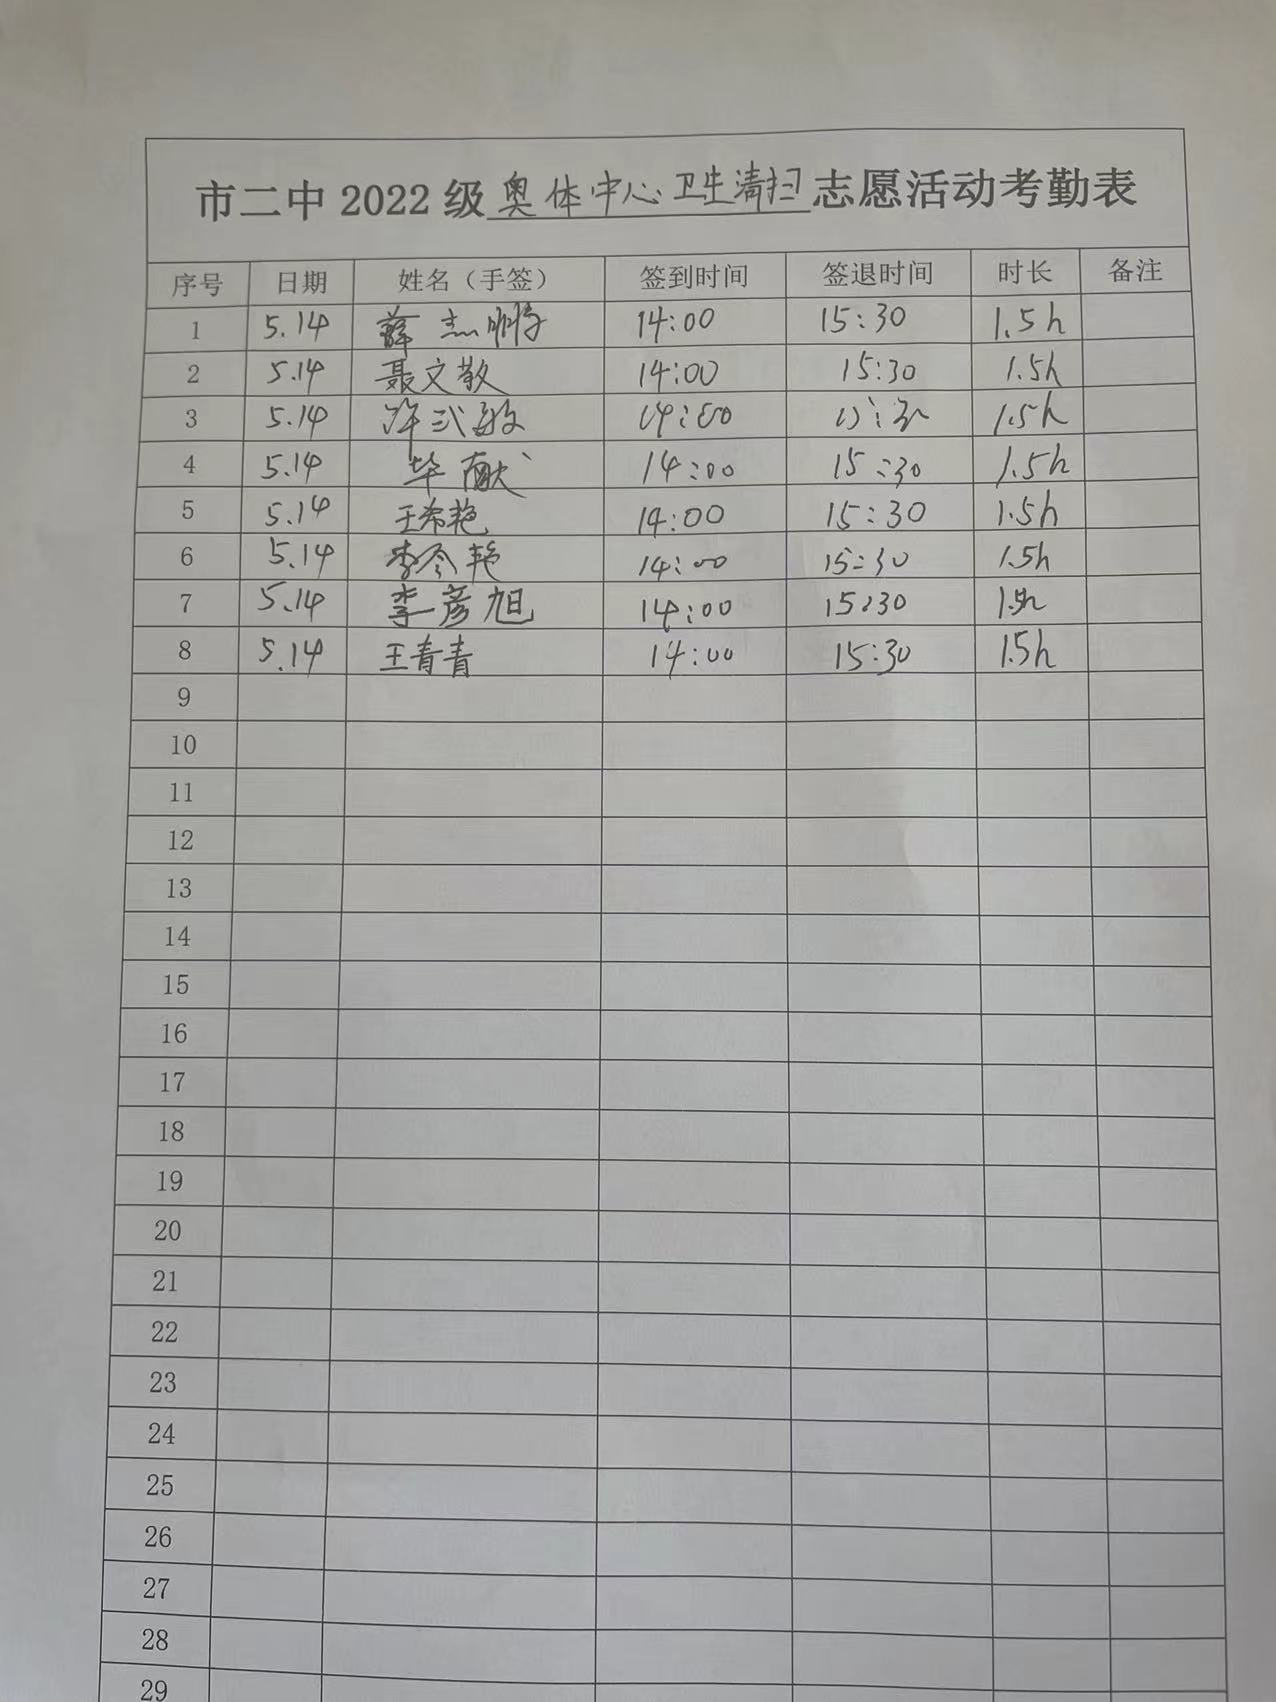 市二中2022级奥体中心卫生清扫志愿活动考勤表
序号 日期 姓名（手签） 签到时间 签退时间 时长 备注
1 5.14 薛志鹏 14:00 15:30 1.5h
2 5.14 聂文敬 14:00 15:30 1.5h
3 5.14 14:00 15:30 1.5h
4 5.14 毕献 14:00 15:30 1.5h
5 5.14 王希艳 14:00 15:30 1.5h
6 5.14 李令艳 14:00 15:30 1.5h
7 5.14 李彦旭 14:00 15:30 1.5h
8 5.14 王青青 14:00 15:30 1.5h
9
10
11
12
13
14
15
16
17
18
19
20
21
22
23
24
25
26
27
28
29